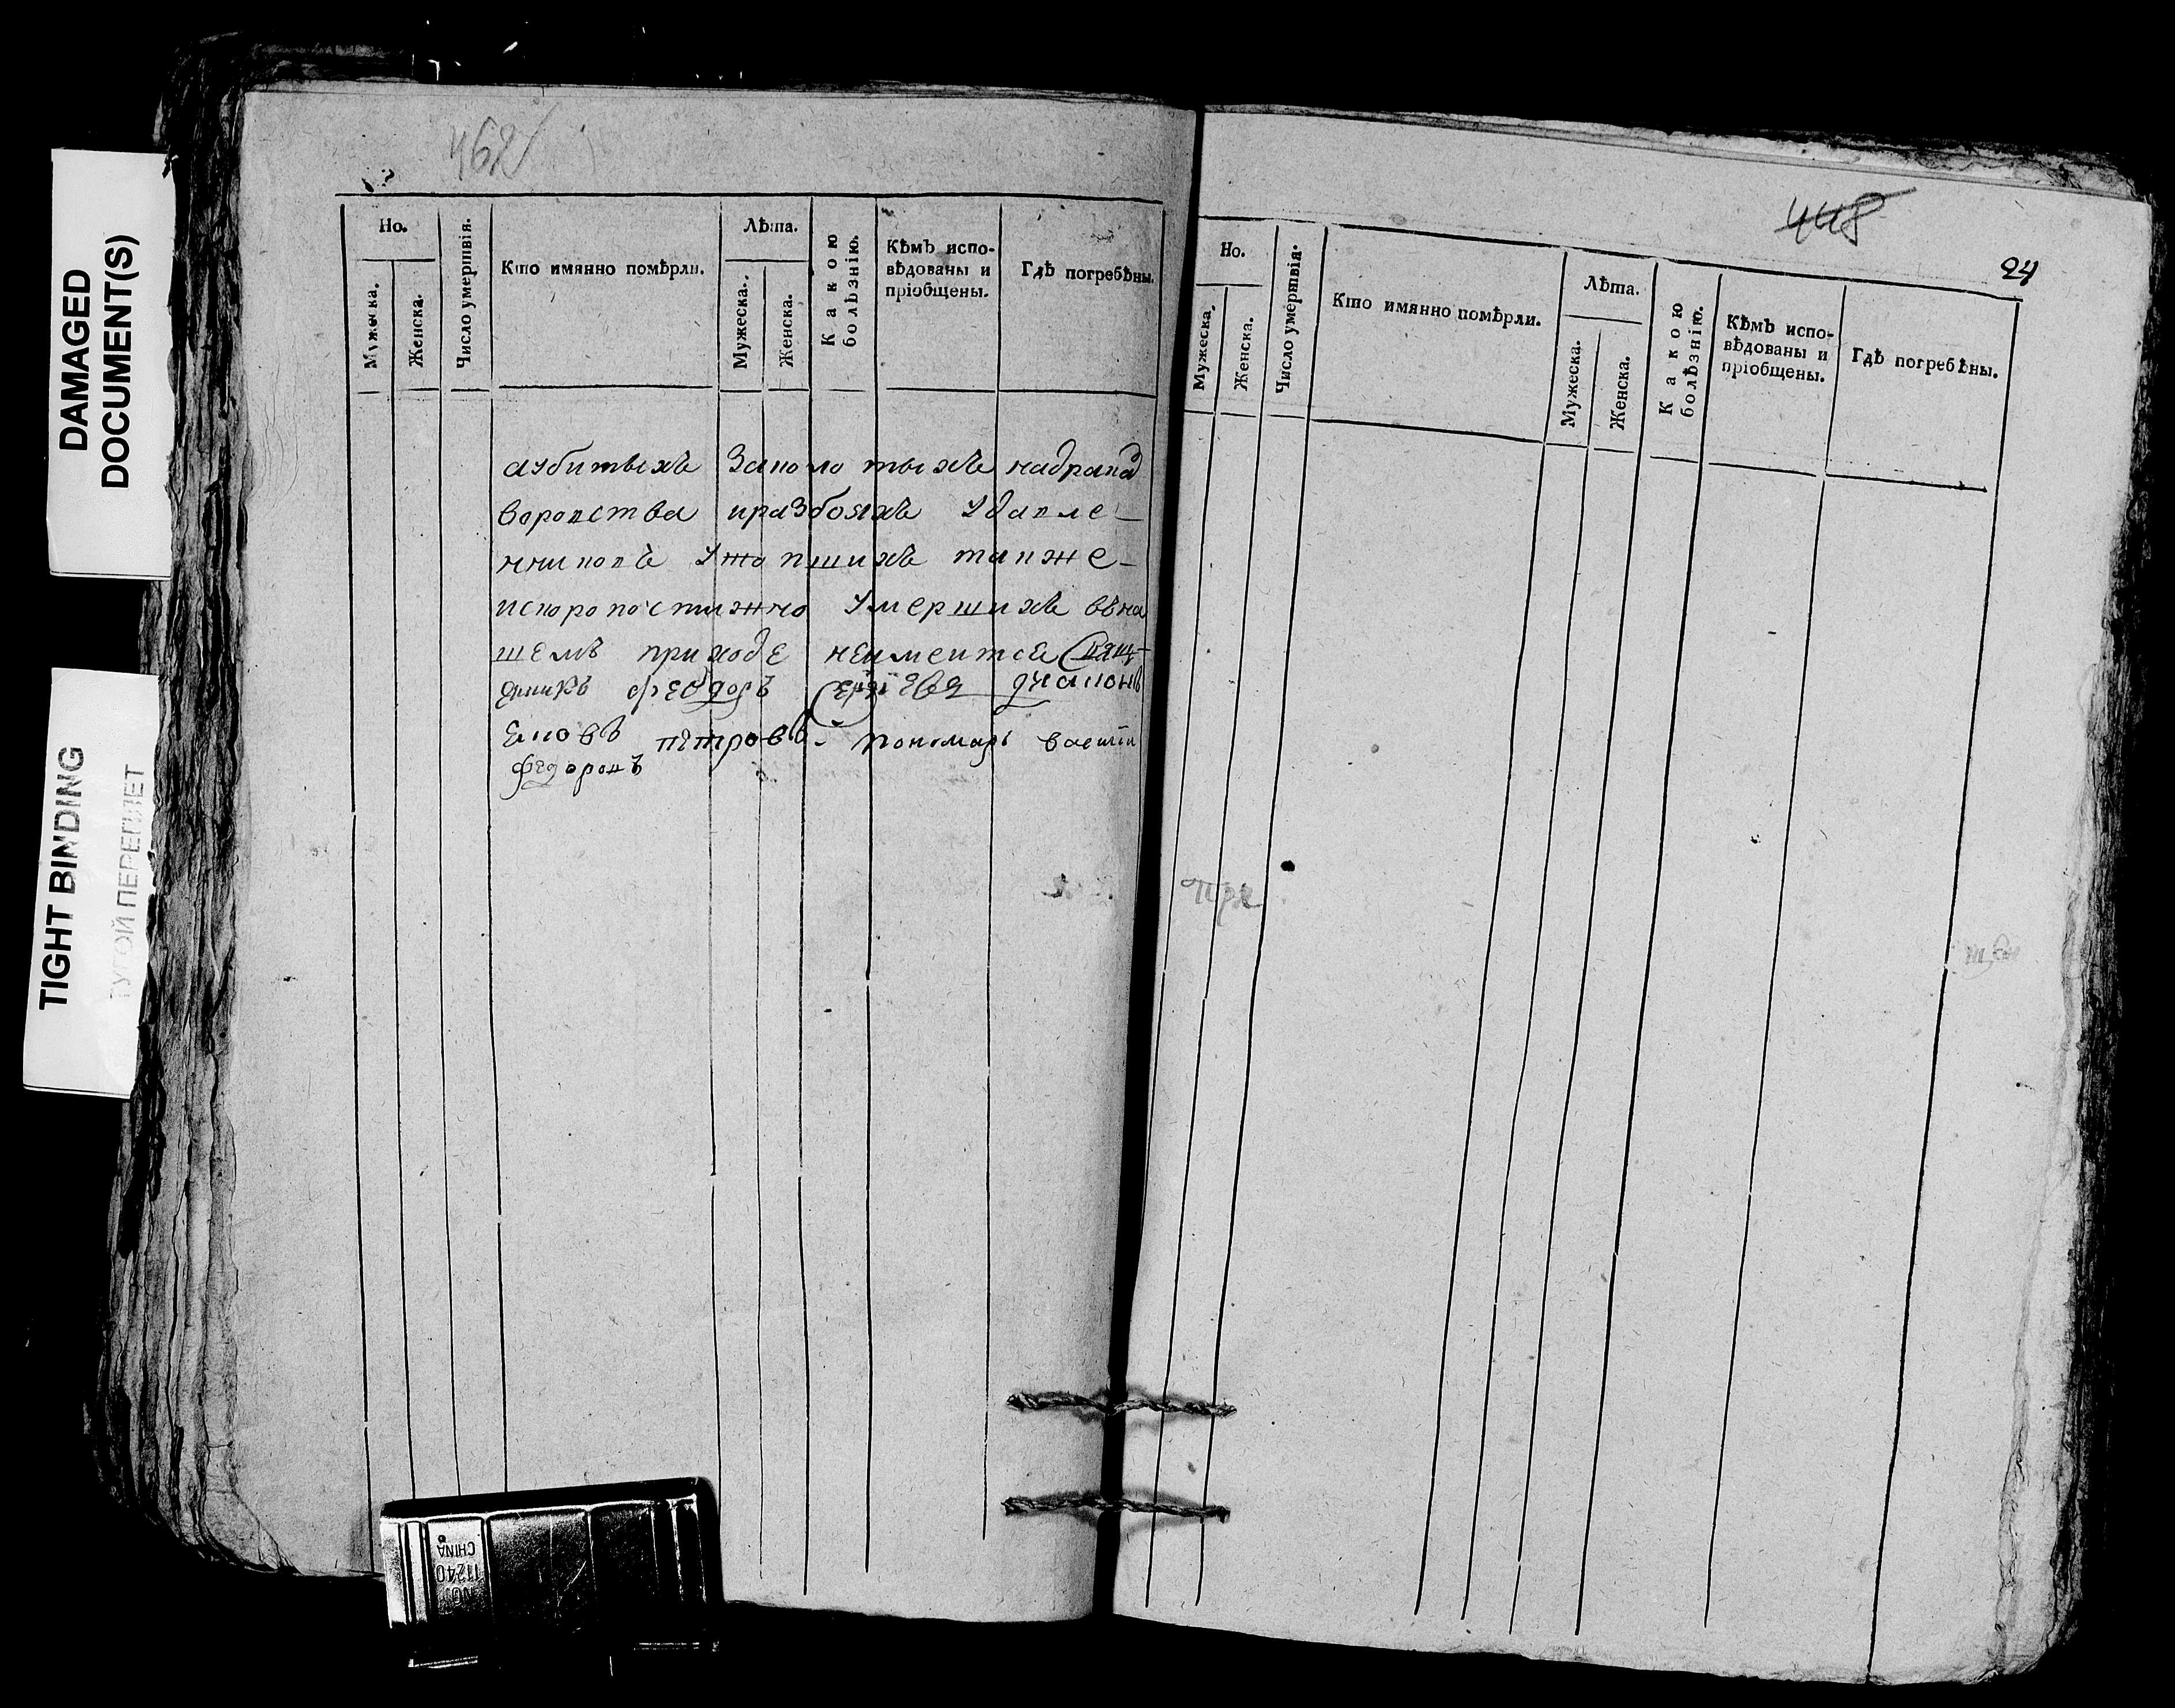 DAMAGED
DOCUMENT(S)
TIGHT BINDING
ТУГОЙ ПЕРЕПЛЕТ
462
Но.
Мужеска.
Женска.
Число умертвія.
Кто имянно помѣрли.
Лѣта.
Мужеска.
Женска.
Какою
болѣзнію.
Кѣмъ испо-
вѣдованы и
пріобщены.
Гдѣ погребѣны.
аубитыхъ заколотыхъ надрака
воровства иразбояхъ удавле-
нниковъ утопшихъ также-
искоропостижно умершихъ вна
шемъ приходе неимеитса Свящ-
енникъ феодоръ Сергіевъ диаконъ
Ековъ петровъ - пономарь васили
федоровъ
448
24
Но.
Мужеска.
Женска.
Число умертвія.
Кто имянно помѣрли.
Лѣта.
Мужеска.
Женска.
Какою
болѣзнію.
Кѣмъ испо-
вѣдованы и
пріобщены.
Гдѣ погребѣны.
NO.
11240
CHINA